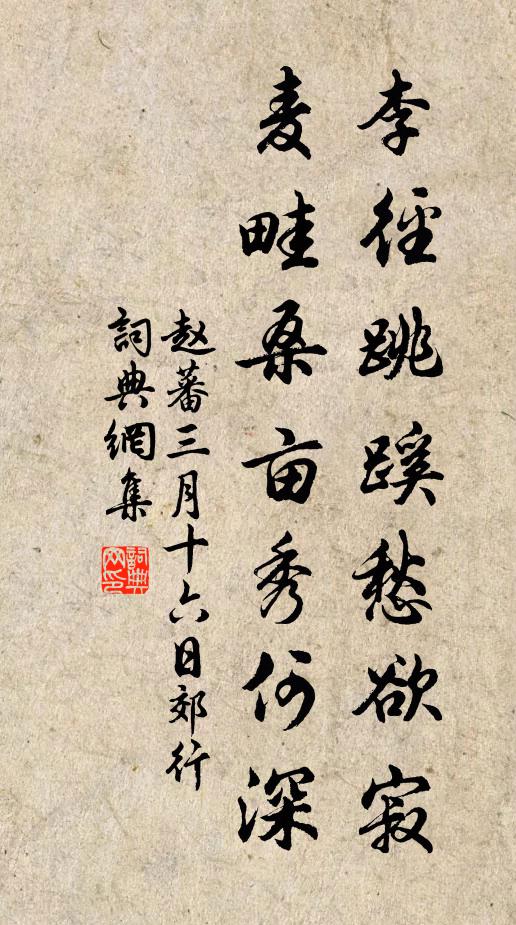 李径跳蹊愁欲寂
麦畦桑亩秀何深
赵蕃三月十六日郊行
詞典網集
詞典網印